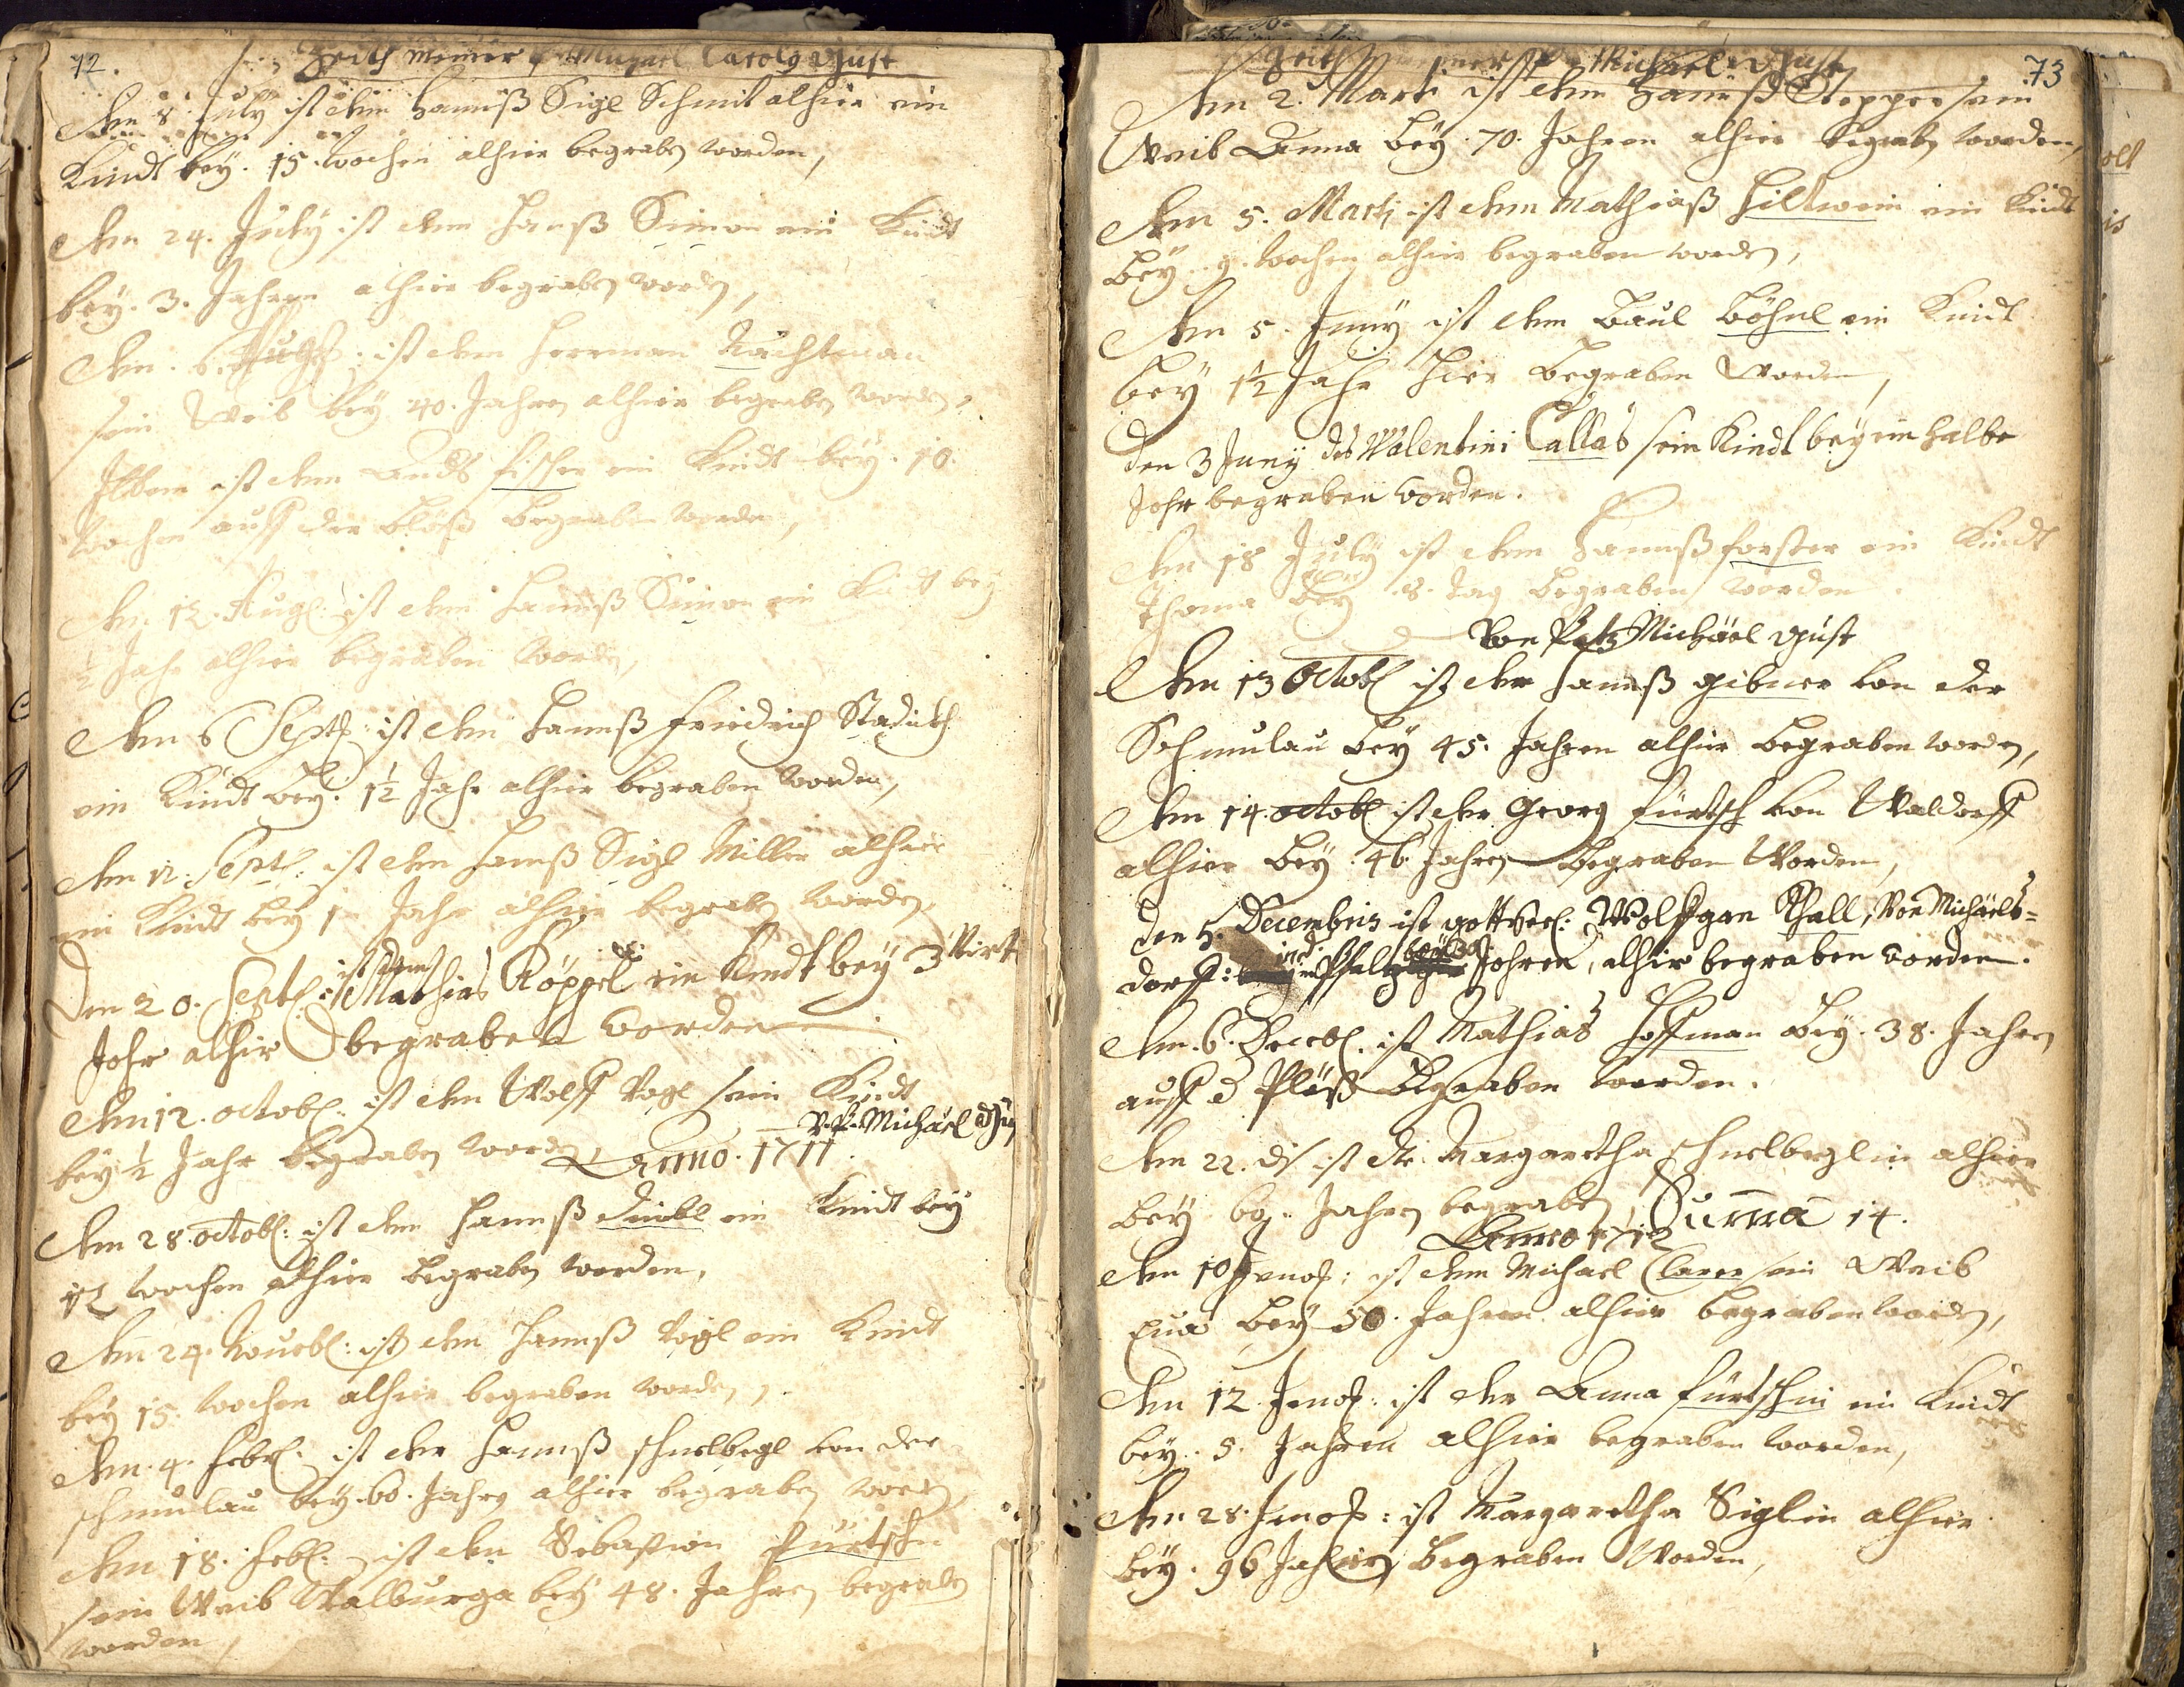 72.
Zeith meiner P Michael Carolg Just
Am 8 July ist dem Hannß Sigl Schmit alhier ein
Kindt bey. 15. wochen alhier begraben worden,
Am 24. July ist dem Hanß Simon ein Kindt
bey. 3. Jahren alhier begraben worden,
Am. 6. Augst: ist dem Herrman Nachtman
sein Weib bey 40. Jahren alhier begraben worden,
ist dem Andt fischer ein Kindt bey. 10.
wochen auff der Blöß begraben worden,
Am. 12. Augs: ist dem Hannß Simon ein Kindt bey
½ Jahr alhier begraben worden,
Am 6 Sept: ist dem Hannß Friedrich
ein Kindt bey. 1½ Jahr alhier begraben worden,
Am 12: Sept: ist dem Hannß Sigl Miller alhier
ein Kindt bey 1 Jahr alhier begraben worden,
Den 20. Sept: ist dem Mathias Röppel ein Kindt bey 3 Virt
Johr alhir begraben worden
Am 12. octob: ist dem Wolff Vogl sein Kindt
bey ½ Jahr begraben worden, V. P. Michäel Just
Anno. 1711.
Am 28. octob: ist dem Hannß ein Kindt bey
12 wochen alhier begraben worden,
Am 24. Novebl: ist dem Hannß Vogl ein Kindt
bey 15. wochen alhier begraben worden,
Am. 4. febr: ist der Hannß schnelbegl von der
schmulau bey. 60. Jahren alhier begraben worden,
Am 18. feb: ist dem Sebastian fürtsch
sein Weib Walburga bey 48. Jahren begraben
worden,
73
Zeith meiner P Michäel Just
Am 2. Marti ist dem Hannß Stepper sein
Weib Anna bey. 70. Jahren alhier begraben worden,
Am 5. Marti ist dem Mathiaß Hiltwein ein Kindt
bey. 9. wochen alhier begraben worden,
Am 5. Juny ist dem Baul Böhnl ein Kindt
bey 1½ Jahr hier begraben worden,
den 3 Juny des Valentini Callas sein Kindt bey ein halbe
Johr begraben worden.
Am 18 July ist dem Hannß forster ein Kindt
Thoma bey. 8. Tag begraben worden.
Von Patr Michäel Just
Am 13 Octob ist der Hannß gibner von der
Schmulau bey 45. Jahren alhier begraben worden,
Am 14. octob ist der Georg fürtsch von Waldorff
alhier bey. 46. Jahren begraben worden,
den 5. Decembris ist gottseel: Wolffgan Thall, Von Michäels=
dorff: in d Pfaltz Johren, alhir begraben worden.
Am. 6. Deceb. ist Mathias Hoffman bey. 38. Jahren
auff d Plöß begraben worden.
Am 22. dis ist die Margaretha schnelbeglin alhier
bey 60. Jahren begraben, Suma 14.
Anno 1712
Am 10 Jenos: ist dem Michael Clarer sein Weib
Eua bey 50. Jahren alhier begraben worden,
Am 12. Jenos: ist der Anna fürtschin ein Kindt
bey. 5. Jahren alhier begraben worden,
Am 28. Jenos: ist Margaretha Siglin alhier
bey. 96 Jahren begraben worden,